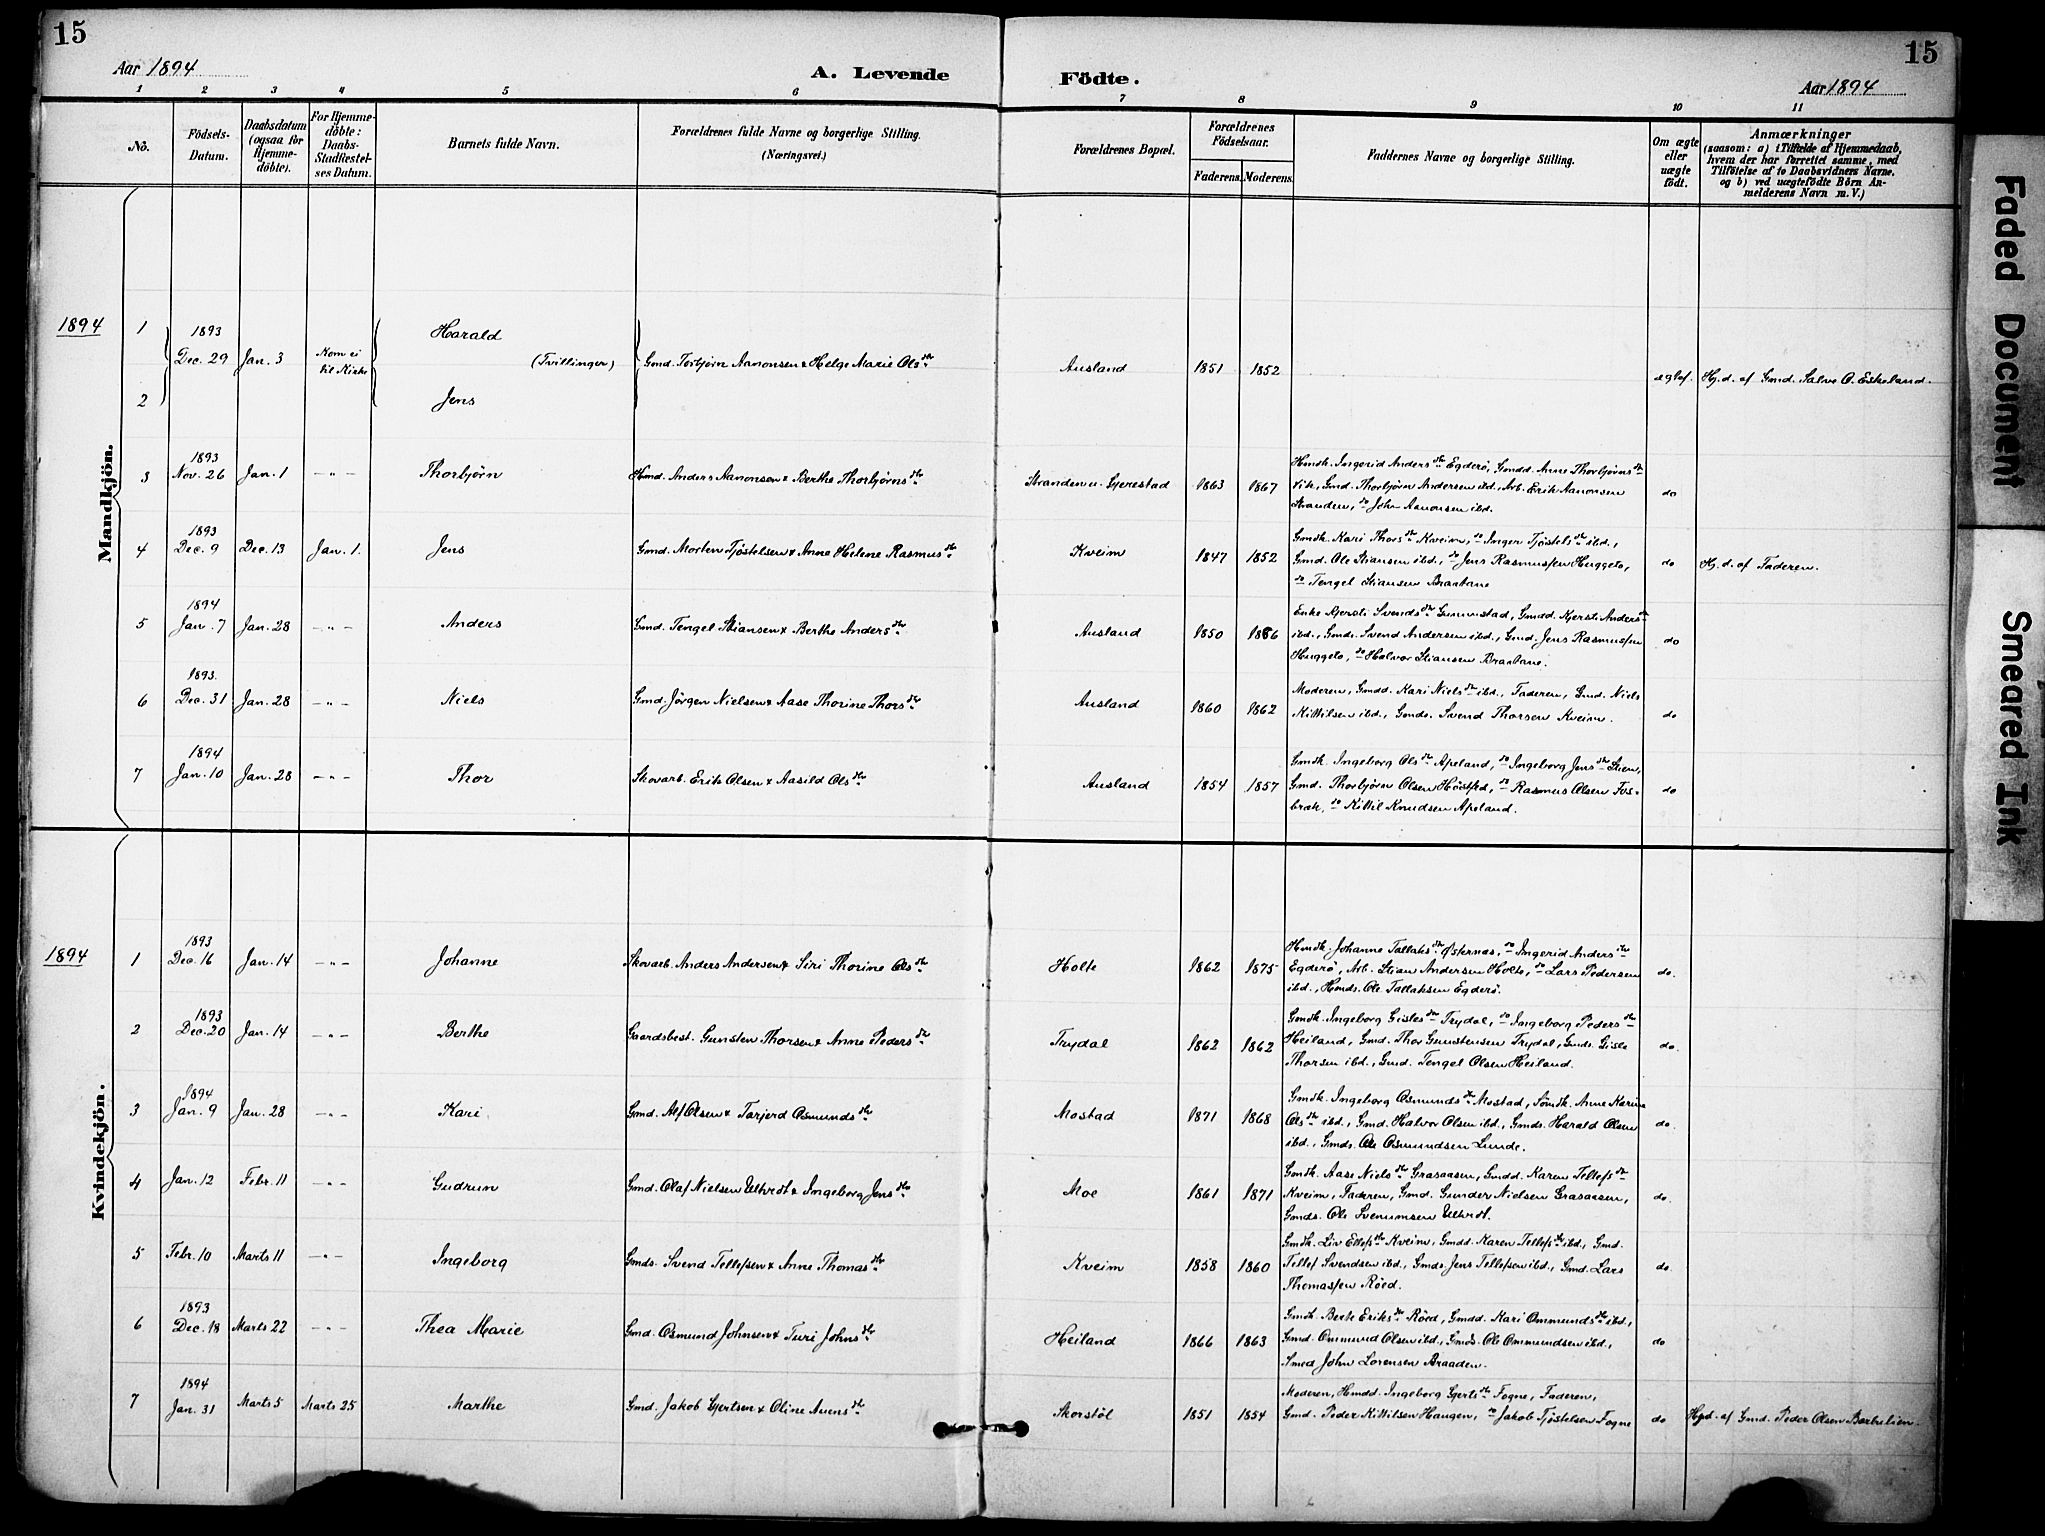 15
Aar 1894
A. Levende
Födte.
Aar 1894
15
1 2 3 4 5 6 7 8 9 10 11
No.
Födsels-
Datum.
Daabsdatum
(ogsaa for
Hjemme-
döbte).
For Hjemme-
döbte:
Daabs-
Stadfæstel-
ses Datum.
Barnets fulde Navn.
Forældrenes fulde Navne og borgerlige Stilling.
(Næringsvei.)
Forældrenes Bopæl.
Forældrenes
Födselsaar.
Faderens. Moderens.
Faddernes Navne og borgerlige Stilling.
Om ægte
eller
uægte
födt.
Anmærkninger
(saasom: a) i Tilfælde af Hjemmedaab,
hvem der har forrettet samme, med
Tilföielse af to Daabsvidners Navne,
og b) ved uægtefödte Börn An-
melderens Navn m. V.)
Mandkjön.
1894
1
2
1893
Dec. 29
Jan. 3
Kom ei
til Kirke
Harald
(Tvillinger)
Jens
Gmd. Torbjørn Aanonsen & Helge Marie Olsdtr.
Ausland
1851
1852
egtef.
Hj.d. af Gmd. Salve O. Eskeland.
3
1893
Nov. 26
Jan. 1
-"-
Thorbjørn
Hmd. Anders Aanonsen & Berthe Thorbjørnsdtr.
Stranden u. Gjerestad
1863
1867
Hmdk. Ingerid Andersdtr. Egderö, Gmdd. Anne Thorbjørnsdtr.
Vik, Gmd. Thorbjørn Andersen ibd., Arb. Erik Aanonsen
Stranden, do John Aanonsen ibd.
do
4
1893
Dec. 9
Dec. 13
Jan. 1.
Jens
Gmd. Morten Tjöstelsen & Anne Helene Rasmusdtr.
Kveim
1847
1852
Gmdk. Kari Thorsdtr. Kveim, do Inger Tjöstelsdtr. ibd.,
Gmd. Ole Stiansen ibd., do Jens Rasmussen Huggeto,
do Tengel Stiansen Braatane
do
Hj. d. af Faderen.
5
1894
Jan. 7
Jan. 28
-"-
Anders
Gmd. Tengel Stiansen & Berthe Andersdtr.
Ausland
1850
1886
Enke Kjersti Svendsdtr. Gunnustad, Gmdd. Kjersti Andersdtr.
ibd., Gmds. Svend Andersen ibd., Gmd. Jens Rasmussen
Huggeto, do Halvor Stiansen Braatane.
do
6
1893.
Dec. 31
Jan. 28
-"-
Niels
Gmd. Jörgen Nielsen & Aase Thorine Thorsdtr.
Ausland
1860
1862
Moderen, Gmdd. Kari Nielsdtr. ibd., Faderen, Gmd. Niels
Kittilsen ibd., Gmds. Svend Thorsen Kveim.
do
7
1894
Jan. 10
Jan. 28
-"-
Thor
Skovarb. Erik Olsen & Aasild Olsdtr.
Ausland
1854
1857
Gmdk. Ingeborg Olsdtr. Apeland, do Ingeborg Jensdtr. Stien,
Gmd. Thorbjørn Olsen, do Rasmus Olsen Fos-
bræk, do Kittil Knudsen Apeland.
do
Kvindekjön.
1894
1
1893
Dec. 16
Jan. 14
-"-
Johanne
Skovarb. Anders Andersen & Siri Thorine Olsdtr.
Holte
1862
1875
Hmdk. Johanne Tallaksdtr. Østernæs, do Ingerid Andersdtr.
Egderö, Arb. Stian Andersen Holte, do Lars Pedersen
ibd., Hmds. Ole Tallaksen Egderö.
do.
2
1893
Dec. 20
Jan. 14
-"-
Berthe
Gaardsbest. Gunsten Thorsen & Anne Pedersdtr.
Trydal
1862
1862
Gmdk. Ingeborg Gislesdtr. Trydal, do Ingeborg Pedersdtr.
Heiland, Gmd. Thor Gunstensen Trydal, Gmds. Gisle
Thorsen ibd., Gmd. Tengel Olsen Heiland.
do.
3
1894
Jan. 9
Jan. 28
-"-
Kari
Gmd. Alf Olsen & Torjerd Osmundsdtr.
Mostad
1871
1868
Gmdk. Ingeborg Osmundsdtr. Mostad, Anne Karine
Olsdtr. ibd., Gmd. Halvor Olsen ibd., Gmds. Harald Olsen
ibd., Gmds. Ole Osmundsen Lunde.
do.
4
Jan. 12
Febr. 11
Gudrun
Gmd. Olaf Nielsen Ulltvedt & Ingeborg Jensdtr.
Moe
1861
1871
Gmdk. Aase Nielsdtr. Grasaasen, Gmdd. Karen Tellefsdtr.
Kveim, Faderen, Gmd. Gunder Nielsen Grasaasen,
Gmds. Ole
do.
5
Febr. 10
Marts 11
-"-
Ingeborg
Gmds. Svend Tellefsen & Anne Thomasdtr.
Kveim
1858
1860
Gmdk. Liv Ellefsdtr. Kveim, Gmdd. Karen Tellefsdtr. ibd., Gmd.
Tellef Svendsen ibd., Gmds. Jens Tellefsen ibd., Gmd. Lars
Thomassen Röed.
do.
6
1893
Dec. 18
Marts 22
-"-
Thea Marie
Gmd. Osmund Johnsen & Turi Johnsdtr.
Heiland
1866
1863
Gmdk. Berte Eriksdtr. Röed, Gmdd. Kari Ommundsdtr. ibd.,
Gmd. Ommund Olsen ibd., Gmds. Ole Ommundsen ibd.,
Smed John Lorensen Braaden.
do
7
1894
Jan. 31
Marts 5
Marts 25
Marthe
Gmd. Jakob Gjertsen & Oline Auensdtr.
Skorstöl
1851
1854
Moderen, Hmdd. Ingeborg Gjertsdtr. Fogne, Faderen,
Gmd. Peder Kittilsen Haugen, do Jakob Tjöstelsen Fogne
do
Hjd. af Gmd. Peder Olsen Barbulien.
Faded Document
Smeared Ink